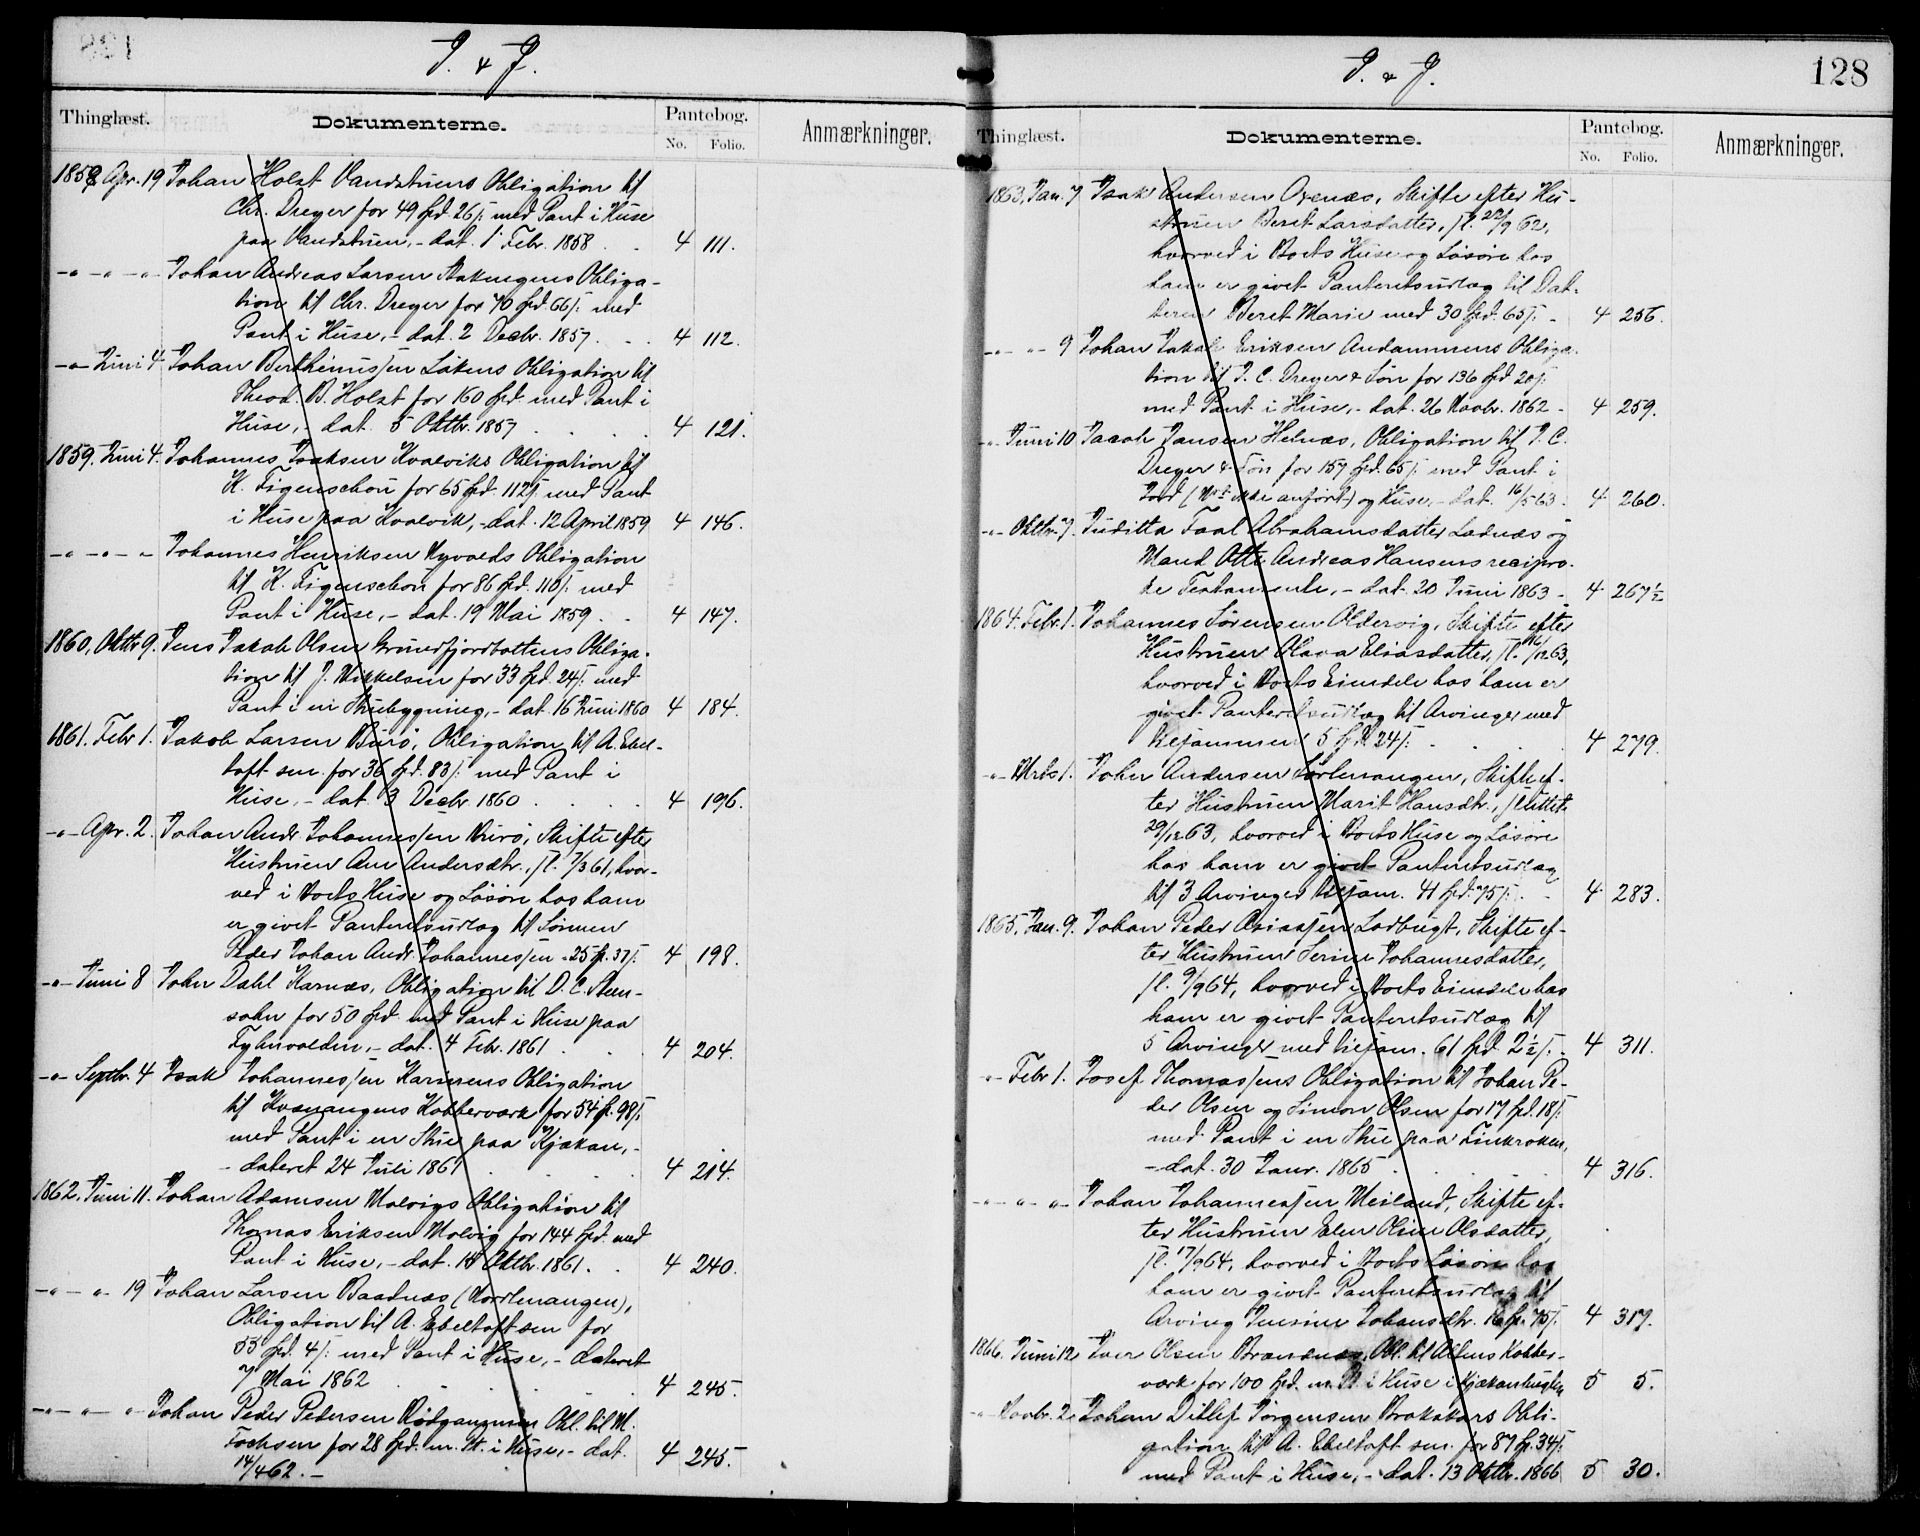 I. & J.
Thinglæst. Dokumenterne. Pantebog. No. Folio. Anmærkninger.
1858 Apr. 19 Johan Holst Vandstuens Obligation til
Chr. Dreyer for 49 Spd. 26 ʃ: med Pant i Huse
paa Vandstuen, - dat. 1 Febr. 1858 . . 4 111.
-"- -"- Johan Andreas Larsen Obliga-
tion til Chr. Dreyer for 70 Spd. 66 ʃ: med
Pant i Huse, - dat. 2 Decbr. 1857. . . 4 112.
-"- Juni 4. Johan Berthinussen Løkens Obligation til
Theod. B. Holst for 160 Spd. med Pant i
Huse, - dat. 5 Oktbr. 1857 . . . 4 121.
1859. Juni 4. Johannes Isaksen Kvalviks Obligation til
K. Figenschou for 65 Spd. 112 ʃ: med Pant
i Huse paa Kvalvik, - dat. 12 April 1859 4 146.
-"- -"- Johannes Henriksen Nyvolds Obligation
til K. Figenschou for 86 Spd. 110 ʃ: med
Pant i Huse, - dat. 19 Mai 1859 . . 4 147.
1860, Oktbr 9. Jens Jakob Olsen Grundfjordbottens Obliga-
tion til J. Mikkelsen for 33 Spd. 24 ʃ: med
Pant i en Stuebygning, - dat. 16 Juni 1860 4 184.
1861. Febr 1. Jakob Larsen Burø, Obligation til A. Ebel-
toft sen. for 36 Spd. 83 ʃ: med Pant i
Huse, - dat. 3 Decbr. 1860 . . . . 4 196.
-"- Apr. 2. Johan Andr. Johannessen Burø, Skifte efter
Hustruen Ane Andersdtr., sl. 7/3 61, hvor-
ved i Boets Huse og Løsøre hos ham
er givet Panteretsudlæg til Sønnen
Peder Johan Andr. Johannessen - 25 Sp. 37 ʃ: 4 198.
-"- Juni 8 John Dahl Karnæs, Obligation til D. C. Steen-
sohn for 50 Spd. med Pant i Huse paa
- dat. 4 Febr. 1861 . . . 4 204.
-"- Septbr. 4 Isak Johannessen Karinens Obligation
til Kvænangens Kobberværk for 54 Sp. 98 ʃ:
med Pant i en Stue paa Kjækan, -
- dateret 24 Juli 1861 . . . 4 214.
1862. Juni 11. Johan Adamsen Molvigs Obligation til
Thomas Eriksen Molvig for 144 Spd. med
Pant i Huse, - dat. 14 Oktbr. 1861. . 4 240.
-"- " 19 Johan Larsen Baadnæs (Nordlenangen),
Obligation til A. Ebeltoft sen for
55 Spd. 4 ʃ: med Pant i Huse, - dateret
7 Mai 1862 . . . . 4 245.
-"- " -"- Johan Peder Pedersen Rødgammen Obl. til M.
Fochsen for 28 Spd. m. Pt. i Huse, - dat.
14/4 62. - 4 245.
I. & J. 128
Thinglæst. Dokumenterne. Pantebog. No. Folio. Anmærkninger.
1863. Jan. 7 Isak Andersen Oxenæs, Skifte efter Hu-
struen Beret Larsdatter, sl. 22/9 62,
hvorved i Boets Huse og Løsøre hos
ham er givet Panteretsudlæg til Dat-
teren Beret Marie med 30 Spd. 65 ʃ: - 4 256.
-"- " 9 Johan Jakob Eriksen Andammens Obliga-
tion til J. C. Dreyer & Søn for 136 Spd. 20 ʃ:
med Pant i Huse, - dat. 26 Novbr. 1862 - 4 259.
-"- Juni 10 Jacob Jansen Helnæs, Obligation til J. C.
Dreyer & Søn for 157 Spd. 65 ʃ: med Pant i
Jord (No. ikke anført) og Huse, - dat. 16/5 63. 4 260.
-"- Oktbr. 7. Juditta Faal Abrahamsdatter Lødnæs og
Mand Otto Andreas Hansens recipro-
ke Testamente, - dat. 20 Juni 1863 - 4 267½
1864. Febr. 1. Johannes Sørensen Oldervig, Skifte efter
Hustruen Olava Eliasdatter, sl. 16/12 63,
hvorved i Boets Eiendele hos ham er
givet Panteretsudlæg til Arvinger med
tilsammen 5 Spd. 24 ʃ: . . . . 4 279.
-"- Mrts 1. John Andersen Sørlenangen, Skifte ef-
ter Hustruen Marit Hansdtr., sluttet
29/12 63, hvorved i Boets Huse og Løsøre
hos ham er givet Panteretsudlæg
til 3 Arvinger tilsam. 41 Spd. 75 ʃ: . - 4 283.
1865. Jan. 9. Johan Peder Asiassen Lodbugt, Skifte ef-
ter Hustruen Serine Johannesdatter,
sl. 9/9 64, hvorved i Boets Eiendele hos
ham er givet Panteretsudlæg til
5 Arvinger med tilsam. 61 Spd. 2½ ʃ: - 4 311.
-"- Febr 1. Josef Thomassens Obligation til Johan Pe-
der Olsen og Simon Olsen for 17 Spd. 18 ʃ:
med Pant i en Stue paa Finkroken,
- dat. 30 Janr. 1865 . . . 4 316.
-"- " -"- Johan Johannessen Meiland, Skifte ef-
ter Hustruen Elen Oline Olsdatter,
sl. 17/9 64, hvorved i Boets Løsøre hos
ham er givet Panteretsudlæg til
Arving Jensine Johansdtr. 16 Sp. 75 ʃ: 4 317.
1866. Juni 12. Iver Olsen Brandnæs, Obl. til Altens Kobber-
værk for 100 Spd. m. Pt. i Huse i Kjækanbugten 5 5.
-"- Novbr. 2. Johan Ditlef Jørgensen Brokskars Obli-
gation til A. Ebeltoft sen. for 87 Sp. 34 ʃ:
med Pant i Huse, - dat. 13 Oktbr. 1866 5 30.